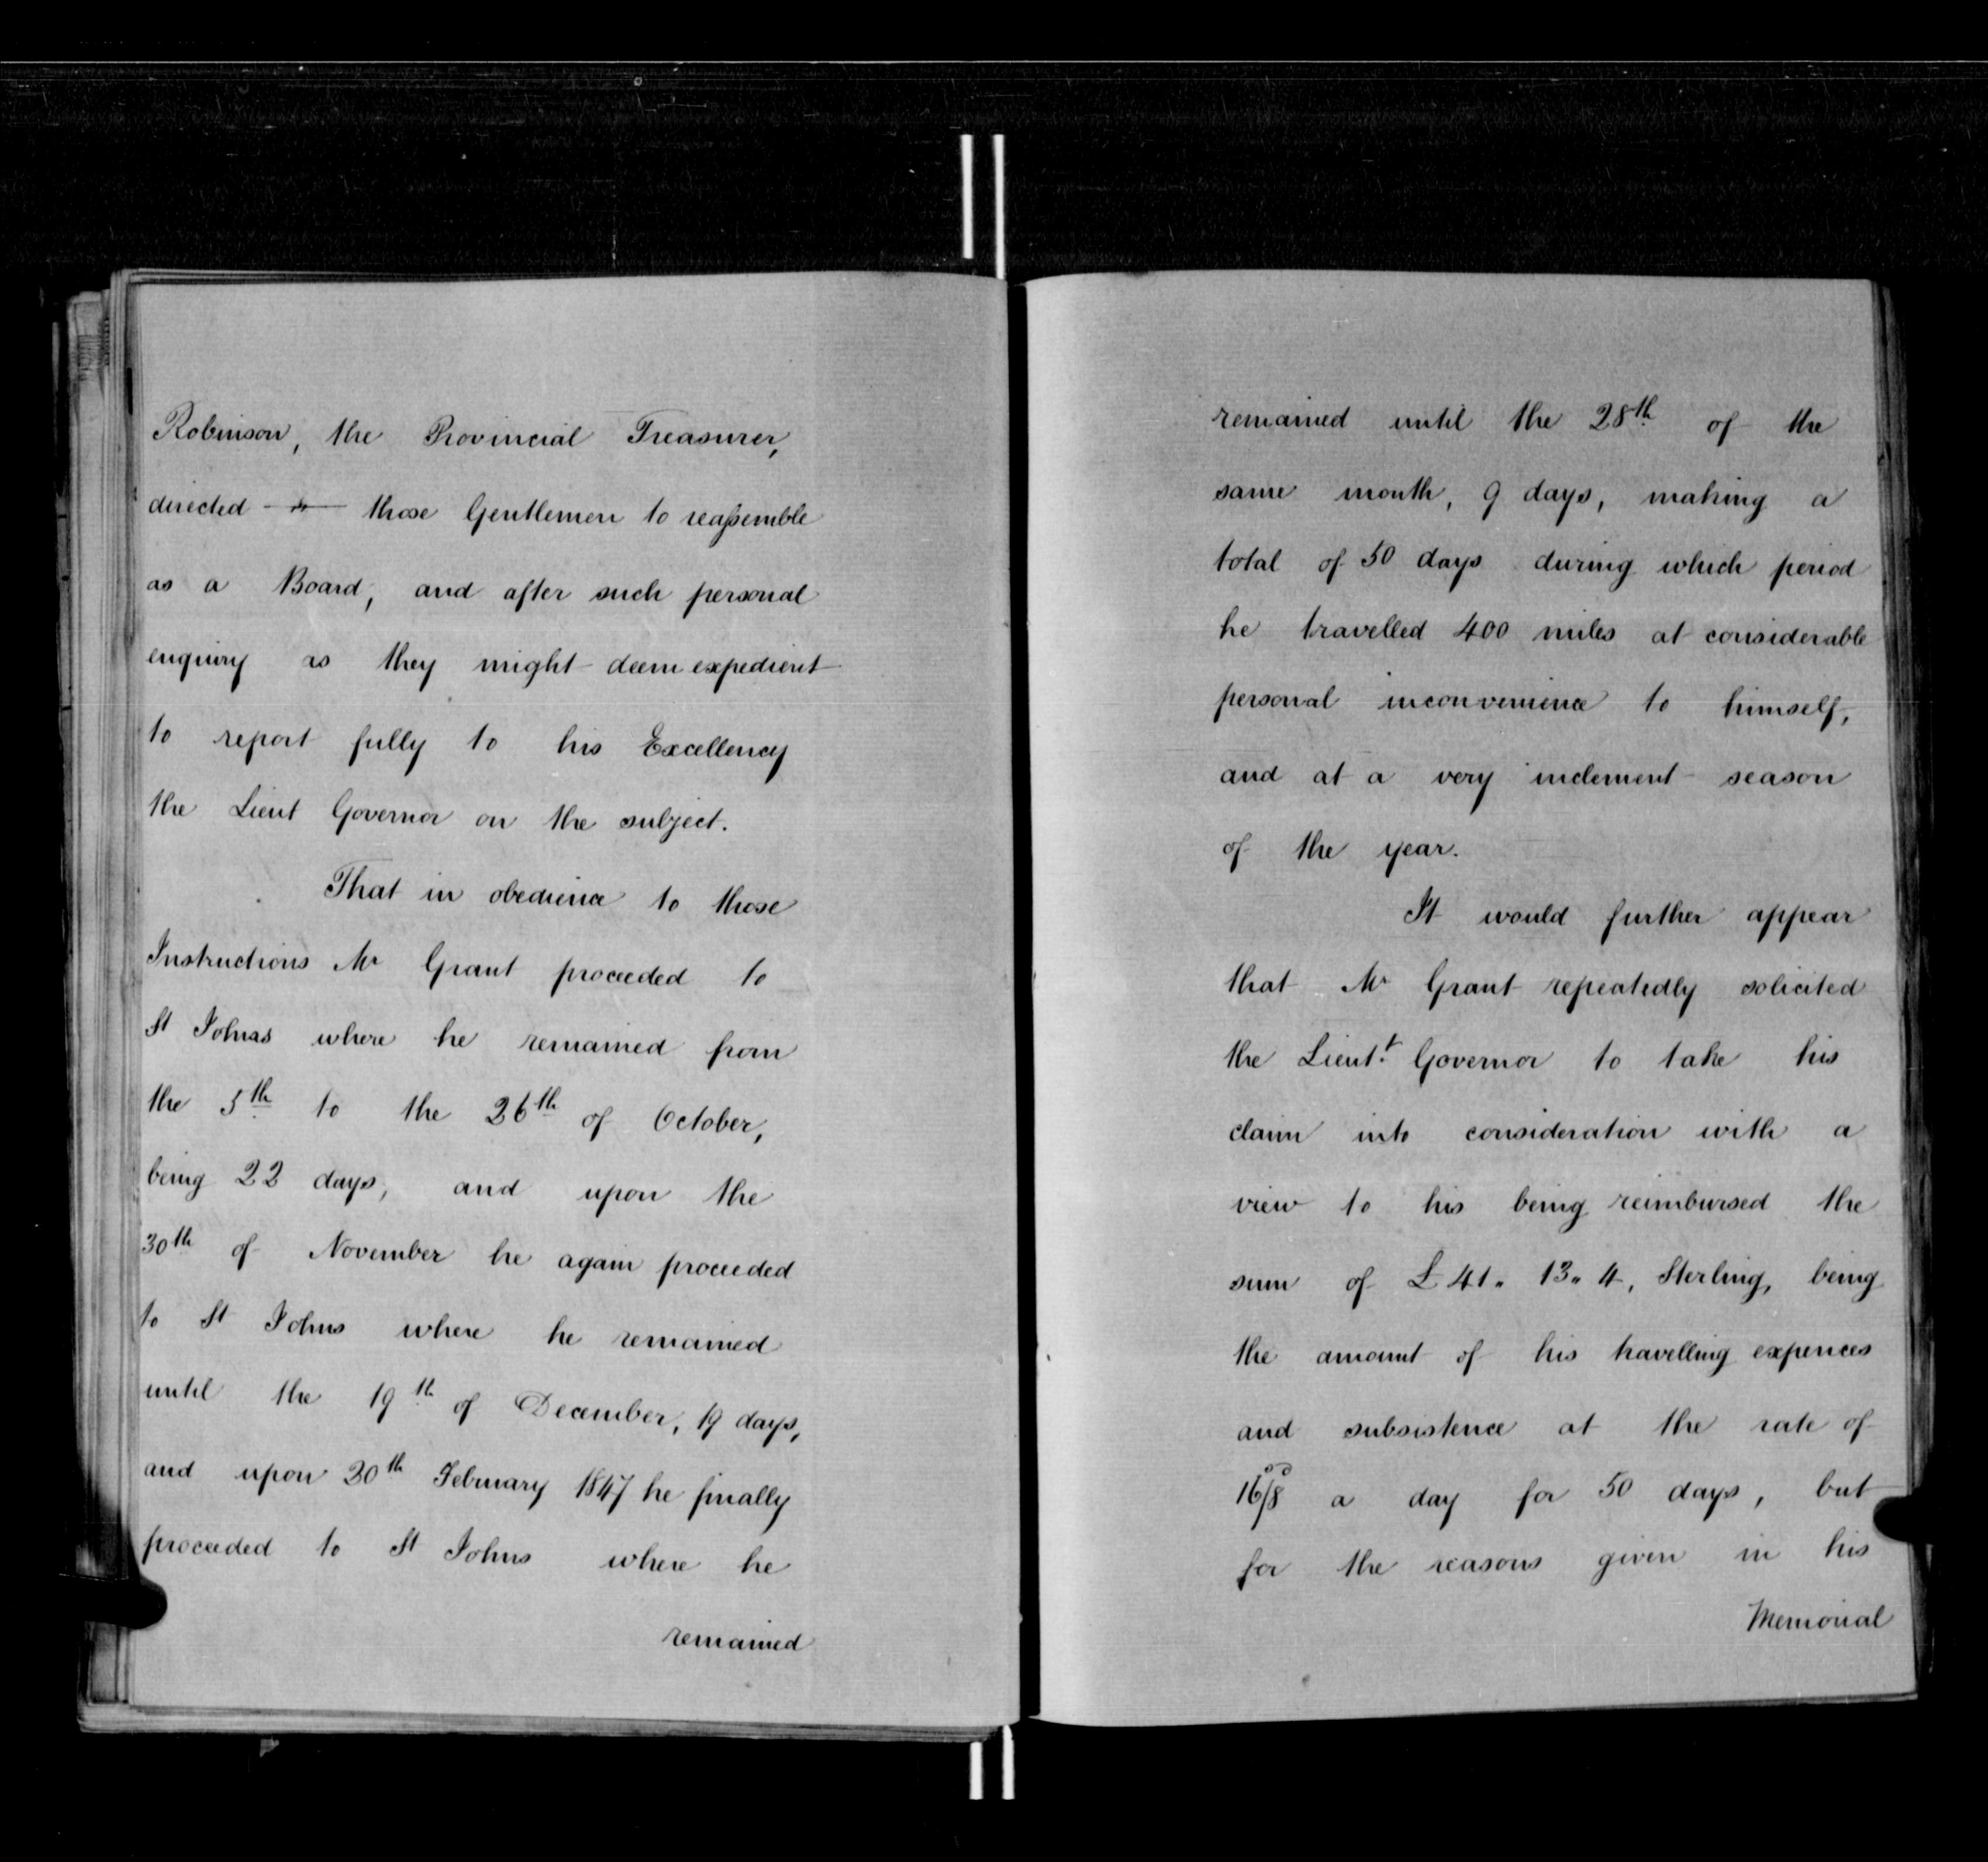 Robinson, the Provincial Treasurer,
directed those Gentlemen to reassemble
as a Board, and after such personal
enquiry as they might deem expedient
to report fully to his Excellency
the Lieut Governor on the subject.
That in obedience to those
Instructions Mr Grant proceeded to
St Johns where he remained from
the 5th to the 26th of October,
being 22 days, and upon the
30th of November he again proceeded
to St Johns where he remained
until the 19th of December, 19 days,
and upon 20th February 1847 he finally
proceeded to St Johns where he
remained
remained until the 28th of the
same month, 9 days, making a
total of 50 days during which period
he travelled 400 miles at considerable
personal inconvenience to himself,
and at a very inclement season
of the year.
It would further appear
that Mr Grant repeatedly solicited
the Lieut.t Governor to take his
claim into consideration with a
view to his being reimbursed the
sum of £41" 13" 4, Sterling, being
the amount of his travelling expences
and subsistence at the rate of
16/8 a day for 50 days, but
for the reasons given in his
Memorial